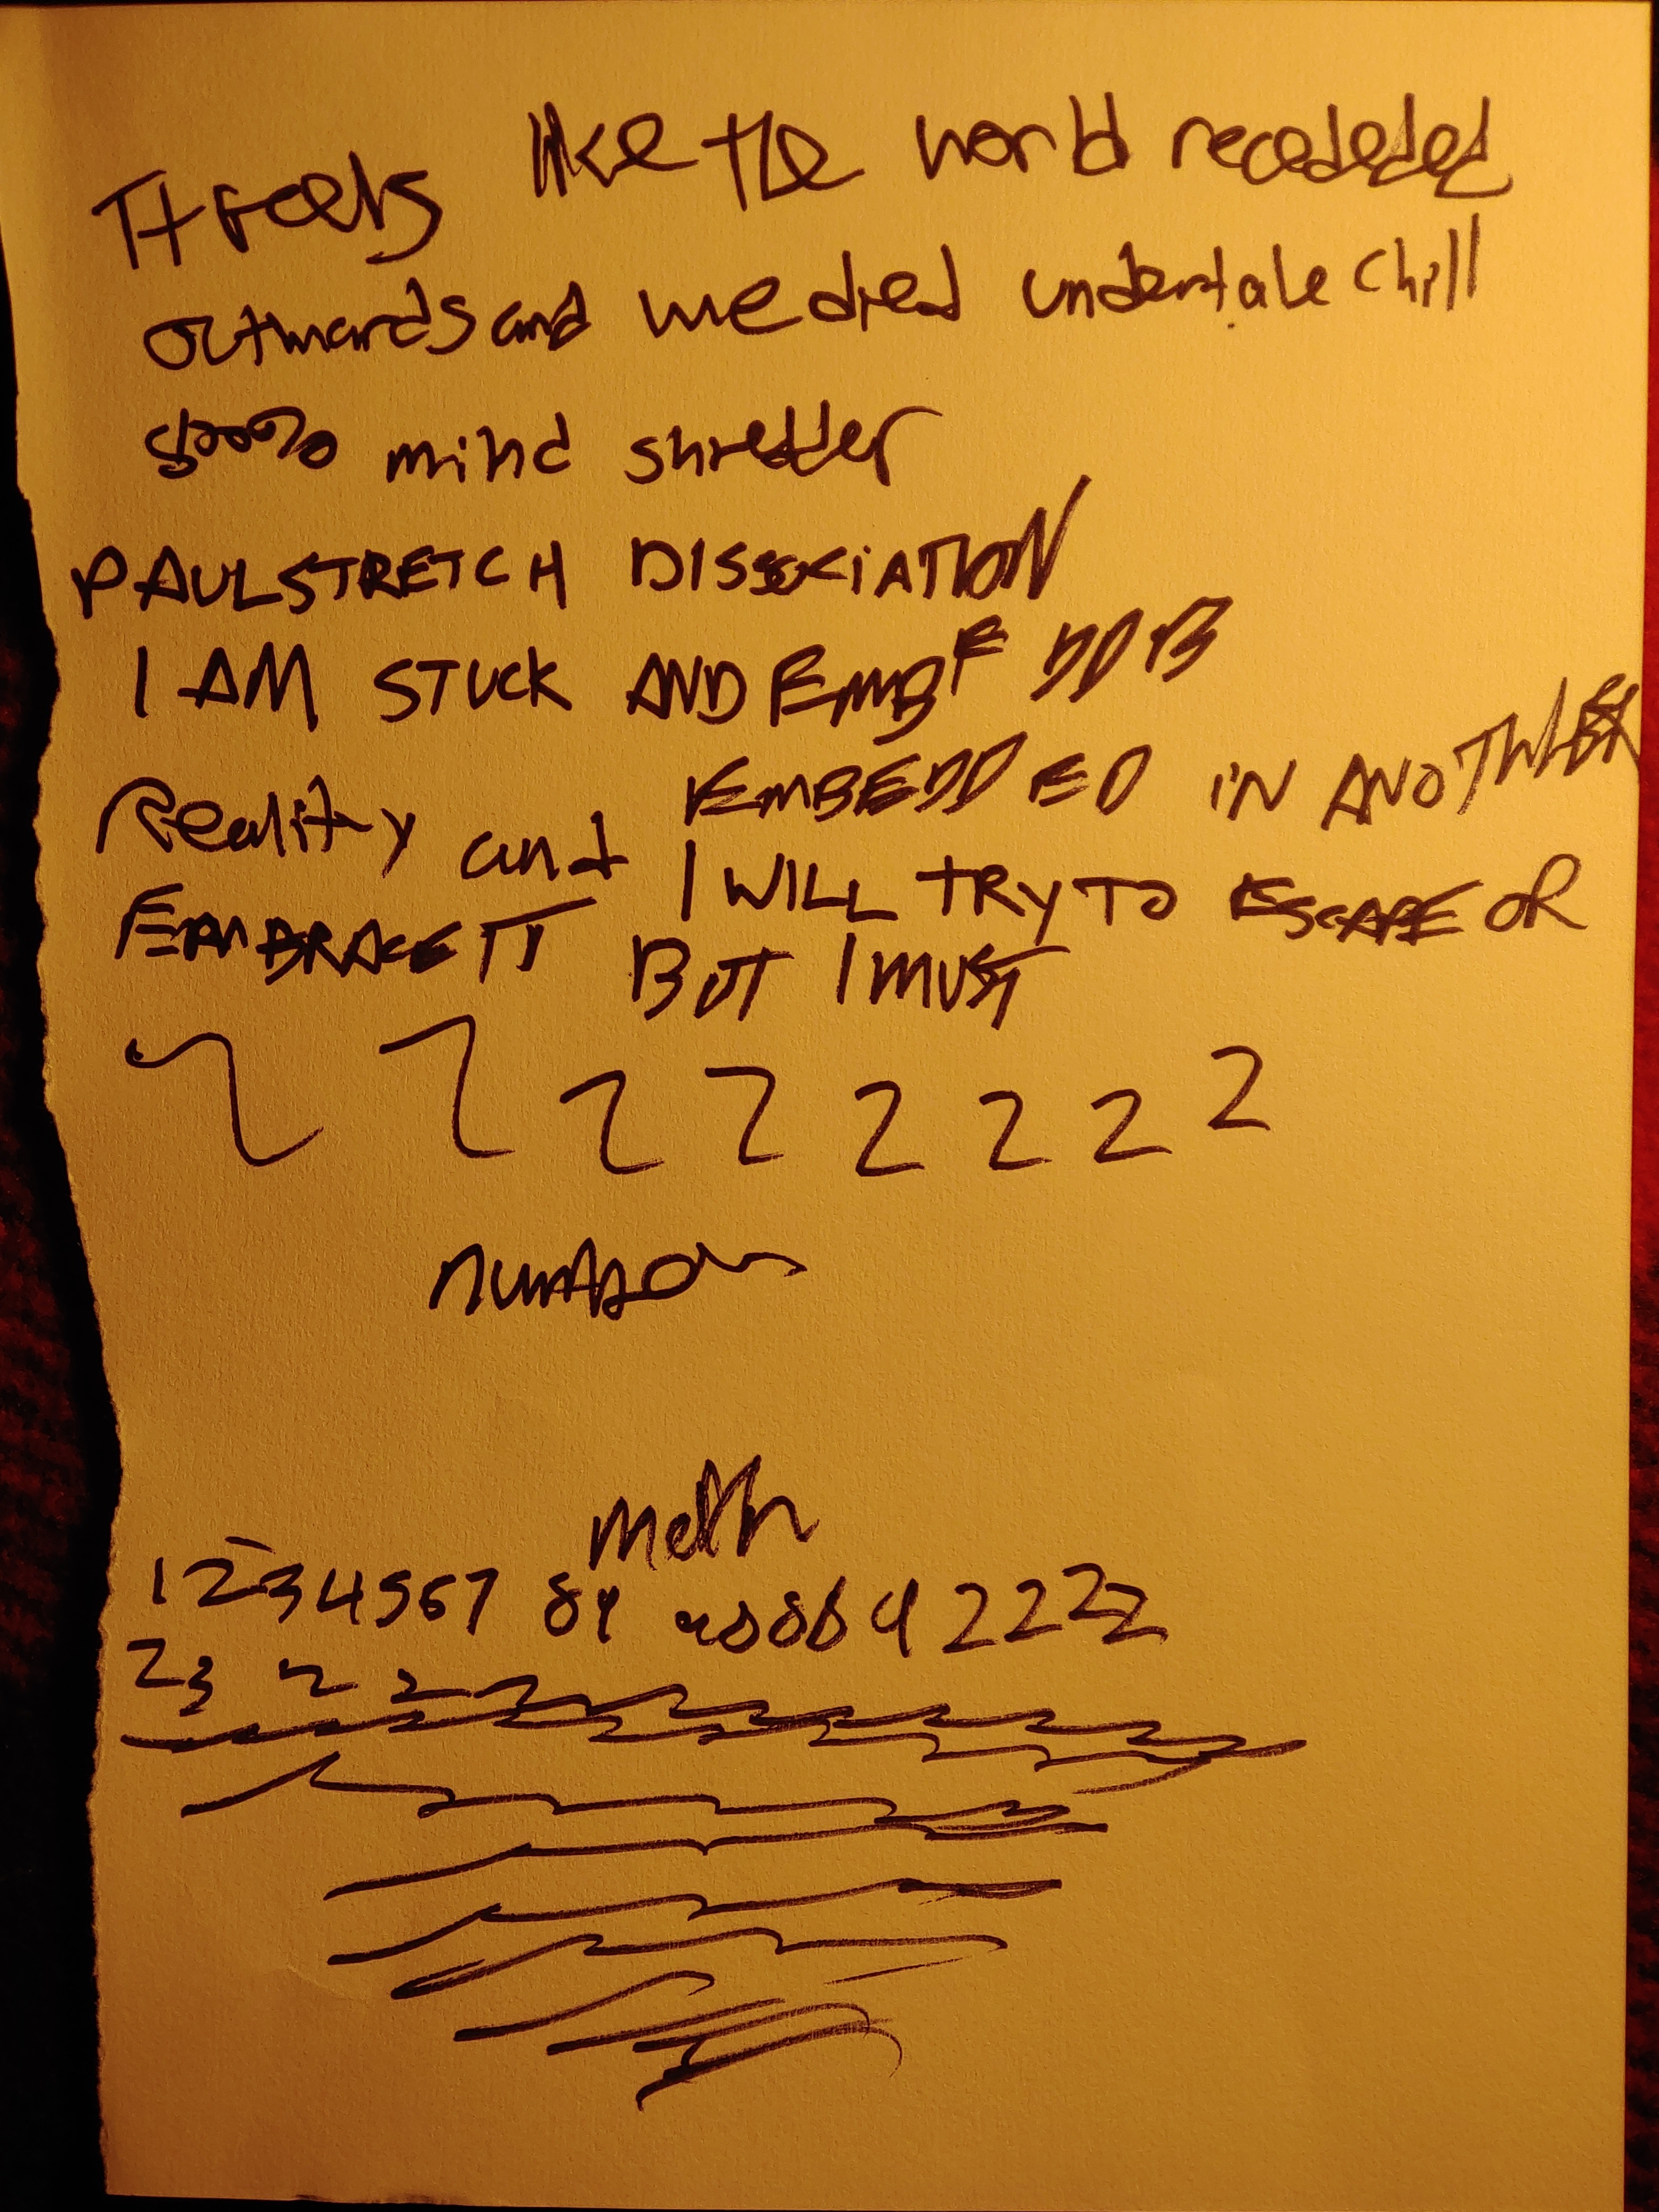 It feels like the world recededed
outwards and we died undertale chill
800% mind shredder
PAULSTRETCH DISSOCIATION
I AM STUCK AND EMBE DD
EMBEDDED IN ANOTHER
Reality and I WILL TRY TO ESCAPE OR
EMBRACE IT BUT I MUST
2 2 2 2 2 2 2 2
math
1 2 3 4 5 6 7 8 9 2 2 2 2
2 3 2 2